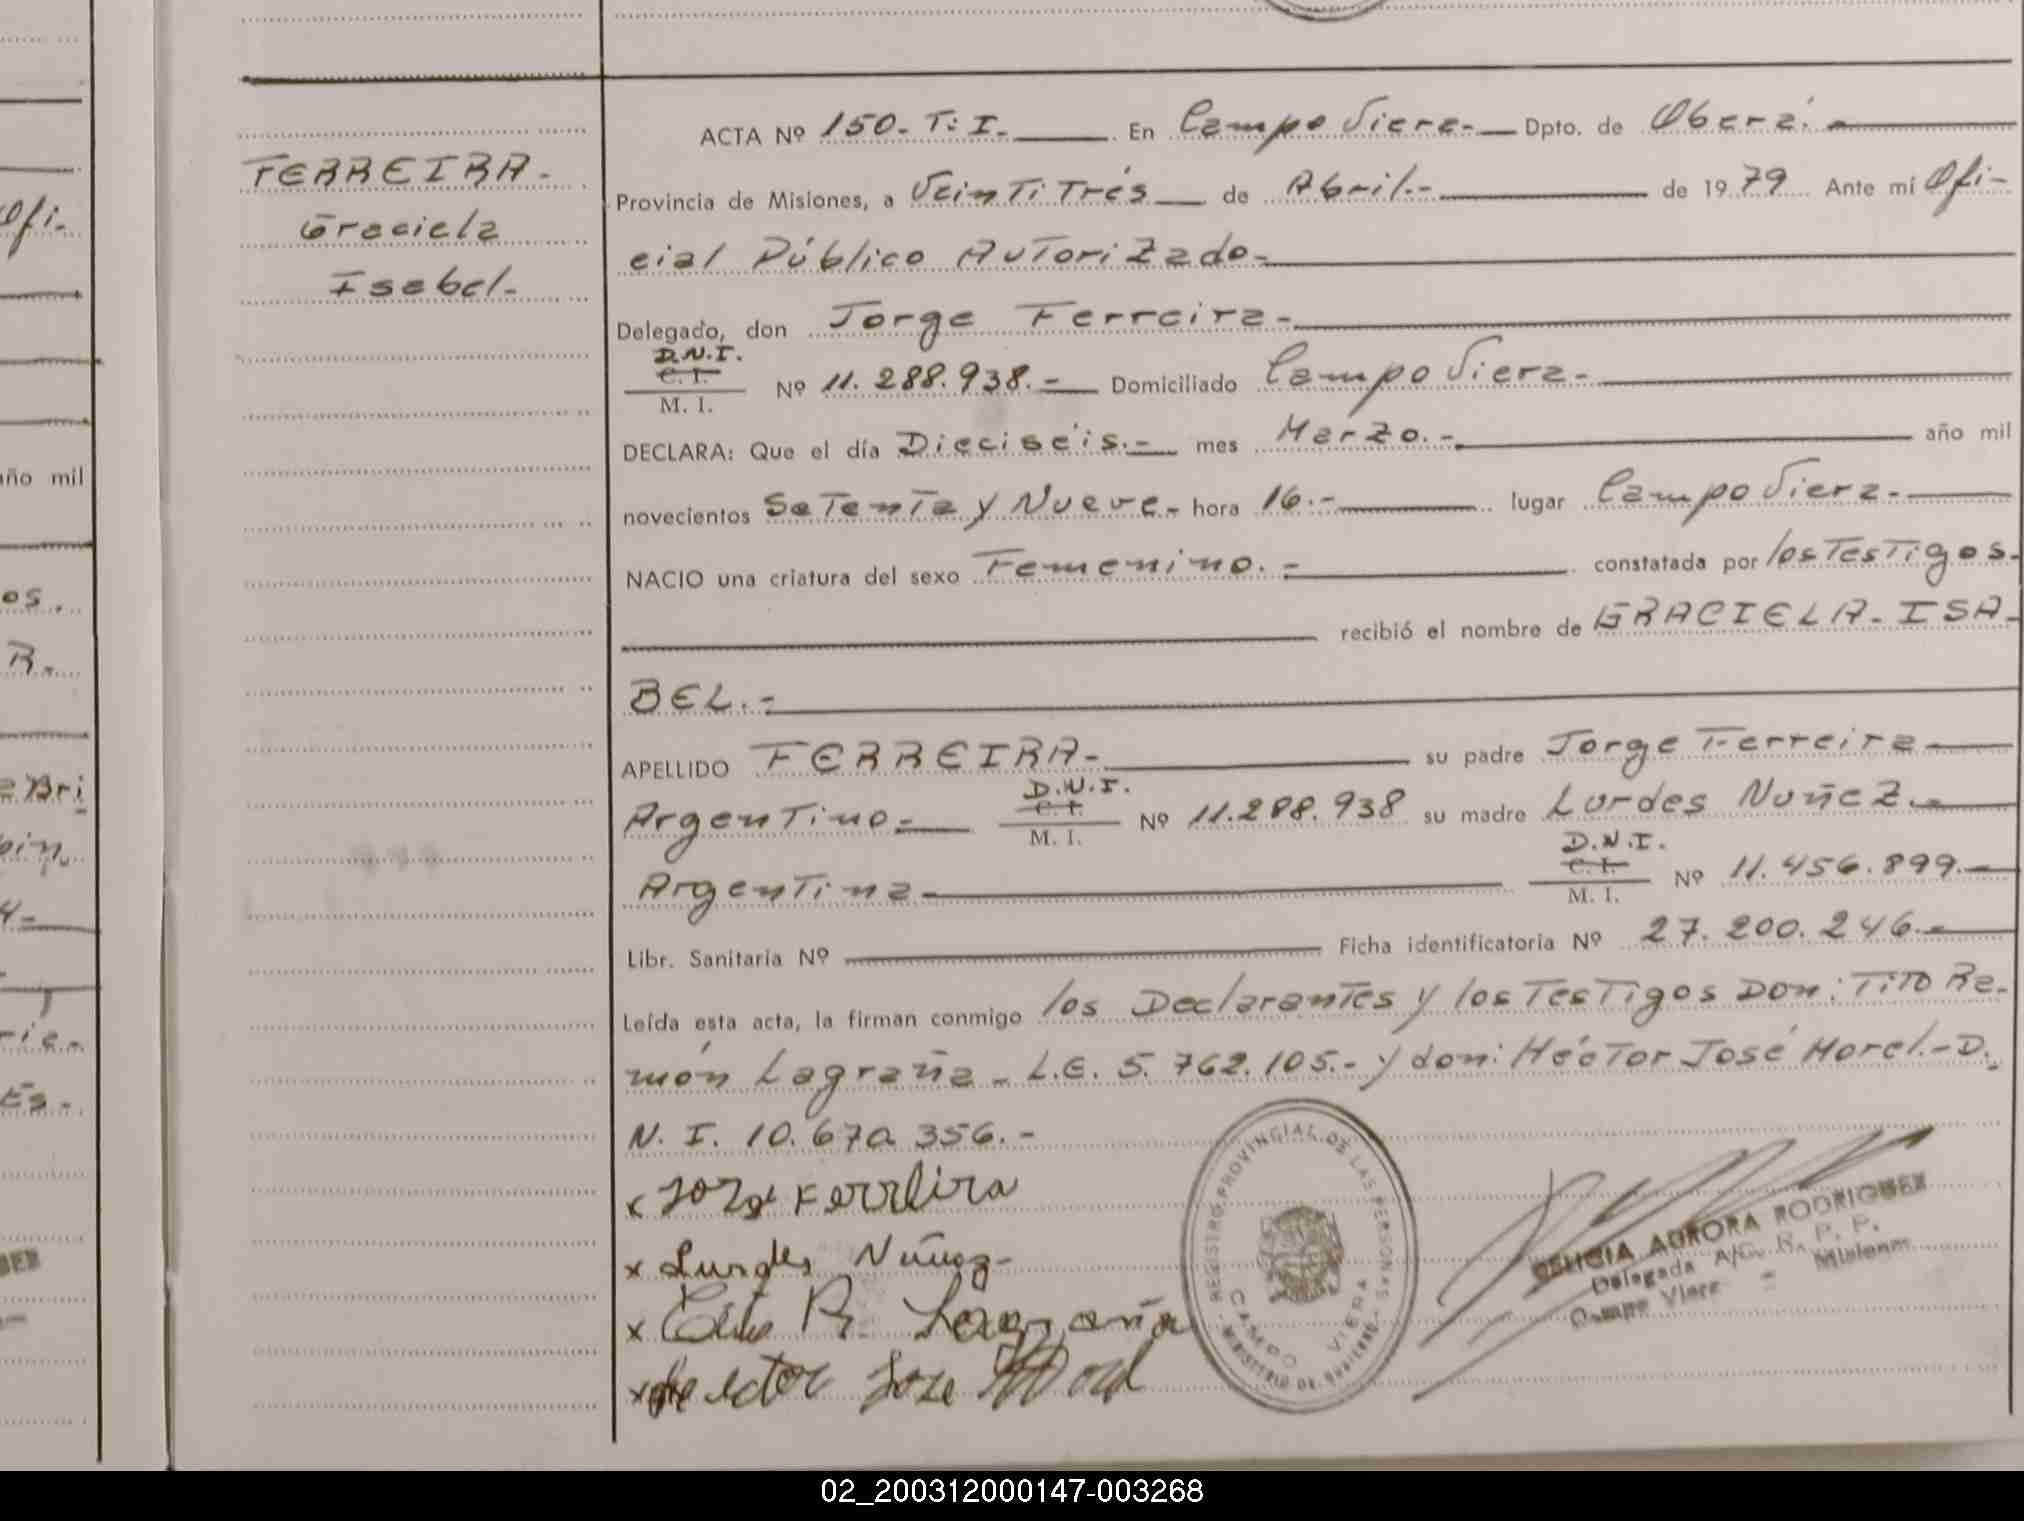 FERREIRA-
Graciela
Isabel-
ACTA Nº 150- T: I- En Campo Viera- Dpto. de Oberá.-
Provincia de Misiones, a Veintitrés de Abril.- de 1979 Ante mí Ofi-
cial Público Autorizado-
Delegado, don Jorge Ferreira-
D.N.I.
C. I.
M. I.
Nº 11.288.938.- Domiciliado Campo Viera-
DECLARA: Que el día Dieciséis.- mes Marzo.- año mil
novecientos Setenta y Nueve- hora 16.- lugar Campo Viera-
NACIO una criatura del sexo Femenino.- constatada por los Testigos.
recibió el nombre de GRACIELA- ISA-
BEL.-
APELLIDO FERREIRA- su padre Jorge Ferreira
Argentino- D.N.I. C. I. M. I. Nº 11.288.938 su madre Lurdes Nuñez.-
Argentina- D.N.I. C. I. M. I. Nº 11.456.899.-
Libr. Sanitaria Nº Ficha identificatoria Nº 27.200.246.-
Leída esta acta, la firman conmigo los Declarantes y los Testigos Don: Tito Ra-
món Lagraña- L.E. 5.762.105.- y don: Héctor José Morel.- D.
N. I. 10.670.356.-
x Jorge Ferreira
x Lurdes Nuñez-
x Tito R. Lagraña
x Hector Jose Morel
REGISTRO PROVINCIAL DE LAS PERSONAS
CAMPO VIERA
MINISTERIO DE GOBIERNO
AURORA RODRIGUEZ
Delegada A/C. R. P. P.
Campo Viera - Misiones
Ofi-
año mil
os.
R.
Bri
02_200312000147-003268